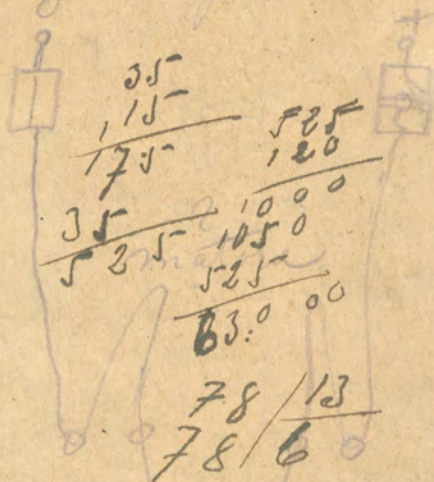 35
,15
175
35
525
525
,120
,000
1050
525
63.000
78/13
78/6